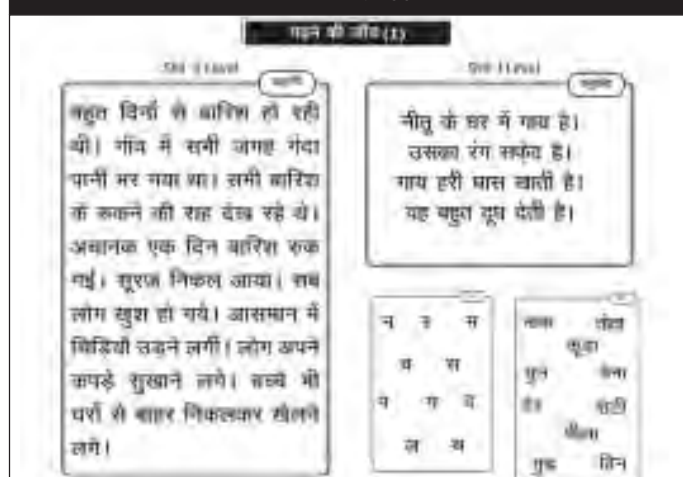 पढ़ने की जाँच (1)
Std II Level
कहानी
बहुत दिनों से बारिश हो रही
थी। गाँव में सभी जगह गंदा
पानी भर गया था। सभी बारिश
के रुकने की राह देख रहे थे।
अचानक एक दिन बारिश रुक
गई। सूरज निकल आया। सब
लोग खुश हो गये। आसमान में
चिड़ियाँ उड़ने लगीं। लोग अपने
कपड़े सुखाने लगे। बच्चे भी
घरों से बाहर निकलकर खेलने
लगे।
Std I Level
नीतू के घर में गाय है।
उसका रंग सफेद है।
गाय हरी घास खाती है।
यह बहुत दूध देती है।
न
स
च स
प ग द
ल थ
तोता
कूड़ा
पीला
दिन